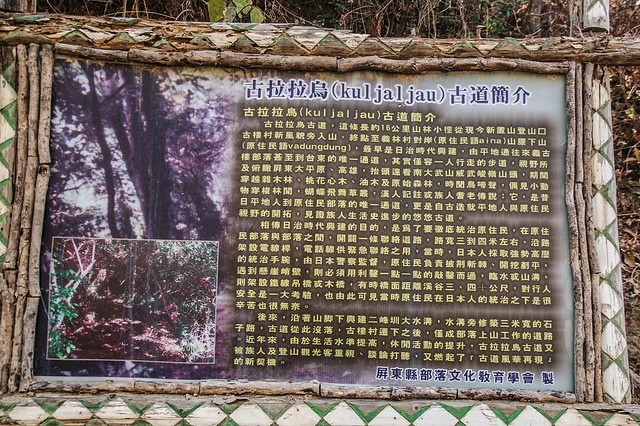 古拉拉烏(kuljaljau)古道簡介
古拉拉烏(kuljaljau)古道簡介
古拉拉烏古道，這條長約16公里山林小徑從現今新置山登山口
古樓村新風貌旁入山、終點至義林村對岸(原住民語aina)山腰下山
(原住民語vadungdung)，最早是日治時代興建，由平地通往來義古
樓部落甚至到台東的唯一通道，其實僅容一人行走的步道，視野所
及俯瞰屏東大平原、高雄，抬頭遠看南大武山威武峻嶺山頭，期間
穿越雜木林、桃花心木、油木及原始森林，時聞鳥啼聲，偶見小動
物穿梭林間，蝴蝶飛舞草叢，漢人記註說族人耆老傳說：它，是昔
日平地人到原住民部落的唯一通道，更是自古造就平地人與原住民
視野的開拓，見證族人生活史進步的悠悠古道。
相傳日治時代興建的目的，是為了要徹底統治原住民，在原住
民部落與部落之間，開闢一條聯絡道路，路寬三到四米左右，沿路
架設電話線，電話線為緊急聯絡之用，當時，日本人採取強勢高壓
的統治手腕，由日本警察監督，原住民負責披荊斬棘、開挖剷平，
遇到懸崖峭壁，則必須用利鑿一點一點的敲鑿而過，臨水或山溝，
則架設鐵線吊橋或木橋，有時橋面距離溪谷三、四十公尺，對行人
安全是一大考驗，也由此可見當時原住民在日本人的統治之下是很
辛苦也很無奈。
後來，沿著山脚下興建二峰圳大水溝，水溝旁修築三米寬的石
子路，古道從此沒落，古樓村遷下之後，僅成部落上山工作的道路
。近年來，由於生活水準提高，休閒活動的提升，古拉拉烏古道又
被族人及登山觀光客重視、談論打聽，又燃起了「古道風華再現」
的新契機。
屏東縣部落文化教育學會 製